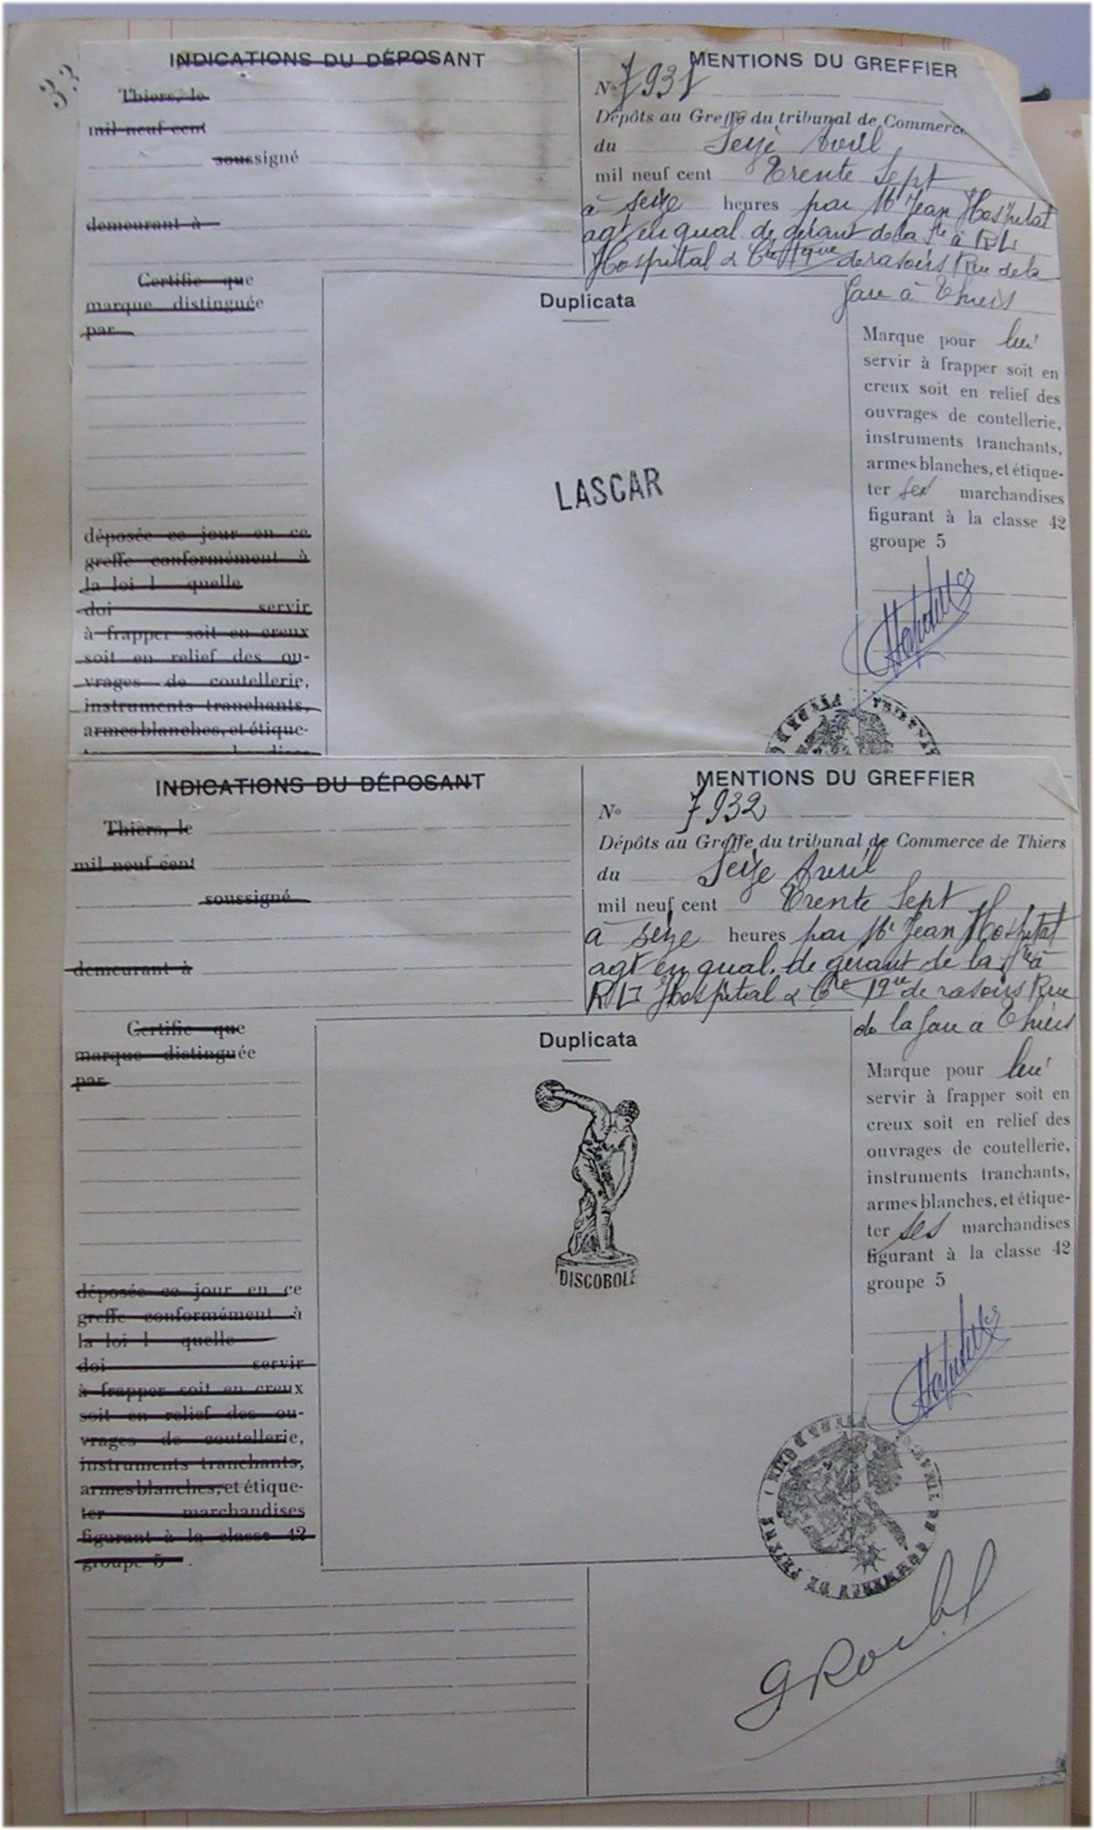 33
INDICATIONS DU DÉPOSANT
Thiers, le
mil neuf cent
soussigné
demeurant à
Certifie que
marque distinguée
par
déposée ce jour en ce
greffe conformément à
la loi l quelle
doi servir
à frapper soit en creux
soit en relief des ou-
vrages de coutellerie,
instruments tranchants,
armes blanches, et étique-
MENTIONS DU GREFFIER
N° 7931
Dépôts au Greffe du tribunal de Commerce
du Seize Avril
mil neuf cent Trente Sept
à seize heures par Mr Jean Hospital
agt en qual. de gérant de la Sté à RL
Hospital & Cie de rasoirs Rue de la
à Thiers
Duplicata
LASCAR
Marque pour lui
servir à frapper soit en
creux soit en relief des
ouvrages de coutellerie,
instruments tranchants,
armes blanches, et étique-
ter ses marchandises
figurant à la classe 42
groupe 5
INDICATIONS DU DÉPOSANT
Thiers, le
mil neuf cent
soussigné
demeurant à
Certifie que
marque distinguée
par
déposée ce jour en ce
greffe conformément à
la loi l quelle
doi servir
à frapper soit en creux
soit en relief des ou-
vrages de coutellerie,
instruments tranchants,
armes blanches, et étique-
ter marchandises
figurant à la classe 42
groupe 5
MENTIONS DU GREFFIER
N° 7932
Dépôts au Greffe du tribunal de Commerce de Thiers
du Seize Avril
mil neuf cent Trente Sept
à seize heures par Mr Jean Hospital
agt en qual. de gérant de la Sté à
RL Hospital & Cie de rasoirs Rue
de la à Thiers
Duplicata
DISCOBOLE
Marque pour lui
servir à frapper soit en
creux soit en relief des
ouvrages de coutellerie,
instruments tranchants,
armes blanches, et étique-
ter ses marchandises
figurant à la classe 42
groupe 5